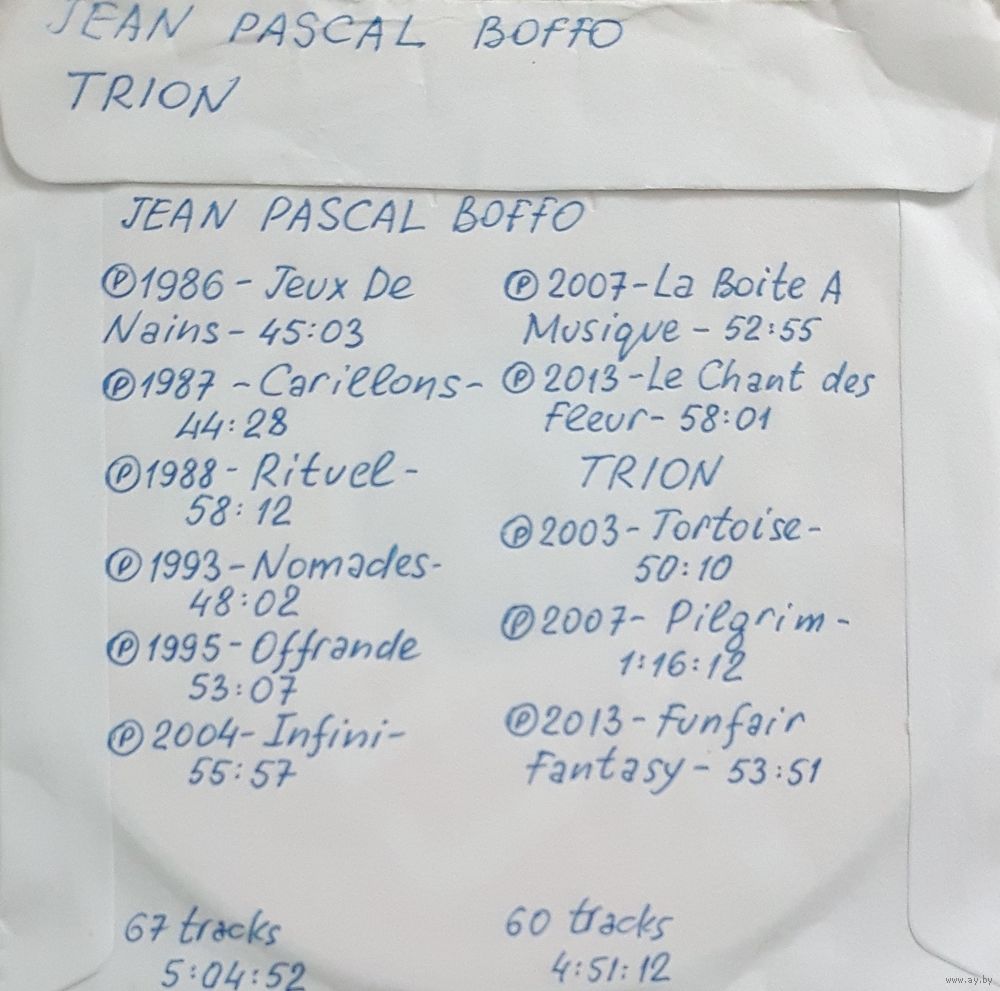 JEAN PASCAL BOFFO
TRION
JEAN PASCAL BOFFO
℗1986 - Jeux De
Nains - 45:03
℗1987 - Carillons -
44:28
℗1988 - Rituel -
58:12
℗1993 - Nomades -
48:02
℗1995 - Offrande
53:07
℗2004 - Infini -
55:57
67 tracks
5:04:52
℗2007 - La Boite A
Musique - 52:55
℗2013 - Le Chant des
Fleur - 58:01
TRION
℗2003 - Tortoise -
50:10
℗2007 - Pilgrim -
1:16:12
℗2013 - Funfair
Fantasy - 53:51
60 tracks
4:51:12
www.ay.by